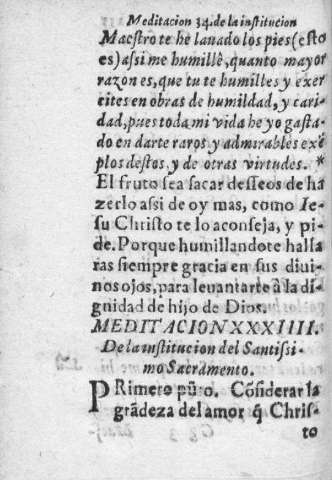 Meditacion 34. de la institucion
Maestro te he lauado los pies (esto
es) assi me humillè, quanto mayor
razon es, que tu te humilles y exer
cites en obras de humildad, y cari
dad, pues toda mi vida he yo gasta-
do en darte raros y admirables exē
plos destos, y de otras virtudes. *
El fruto sea sacar desseos de ha
zerlo assi de oy mas, como Ie-
su Christo te lo aconseja, y pi-
de. Porque humillandote halla
ras siempre gracia en sus diui-
nos ojos, para leuantarte à la di-
gnidad de hijo de Dios.
MEDITACION XXXIIII.
De la institucion del Santissi-
mo Sacramento.
PRimero pūo. Cōsiderar la
grādeza del amor q̄ Chris-
to